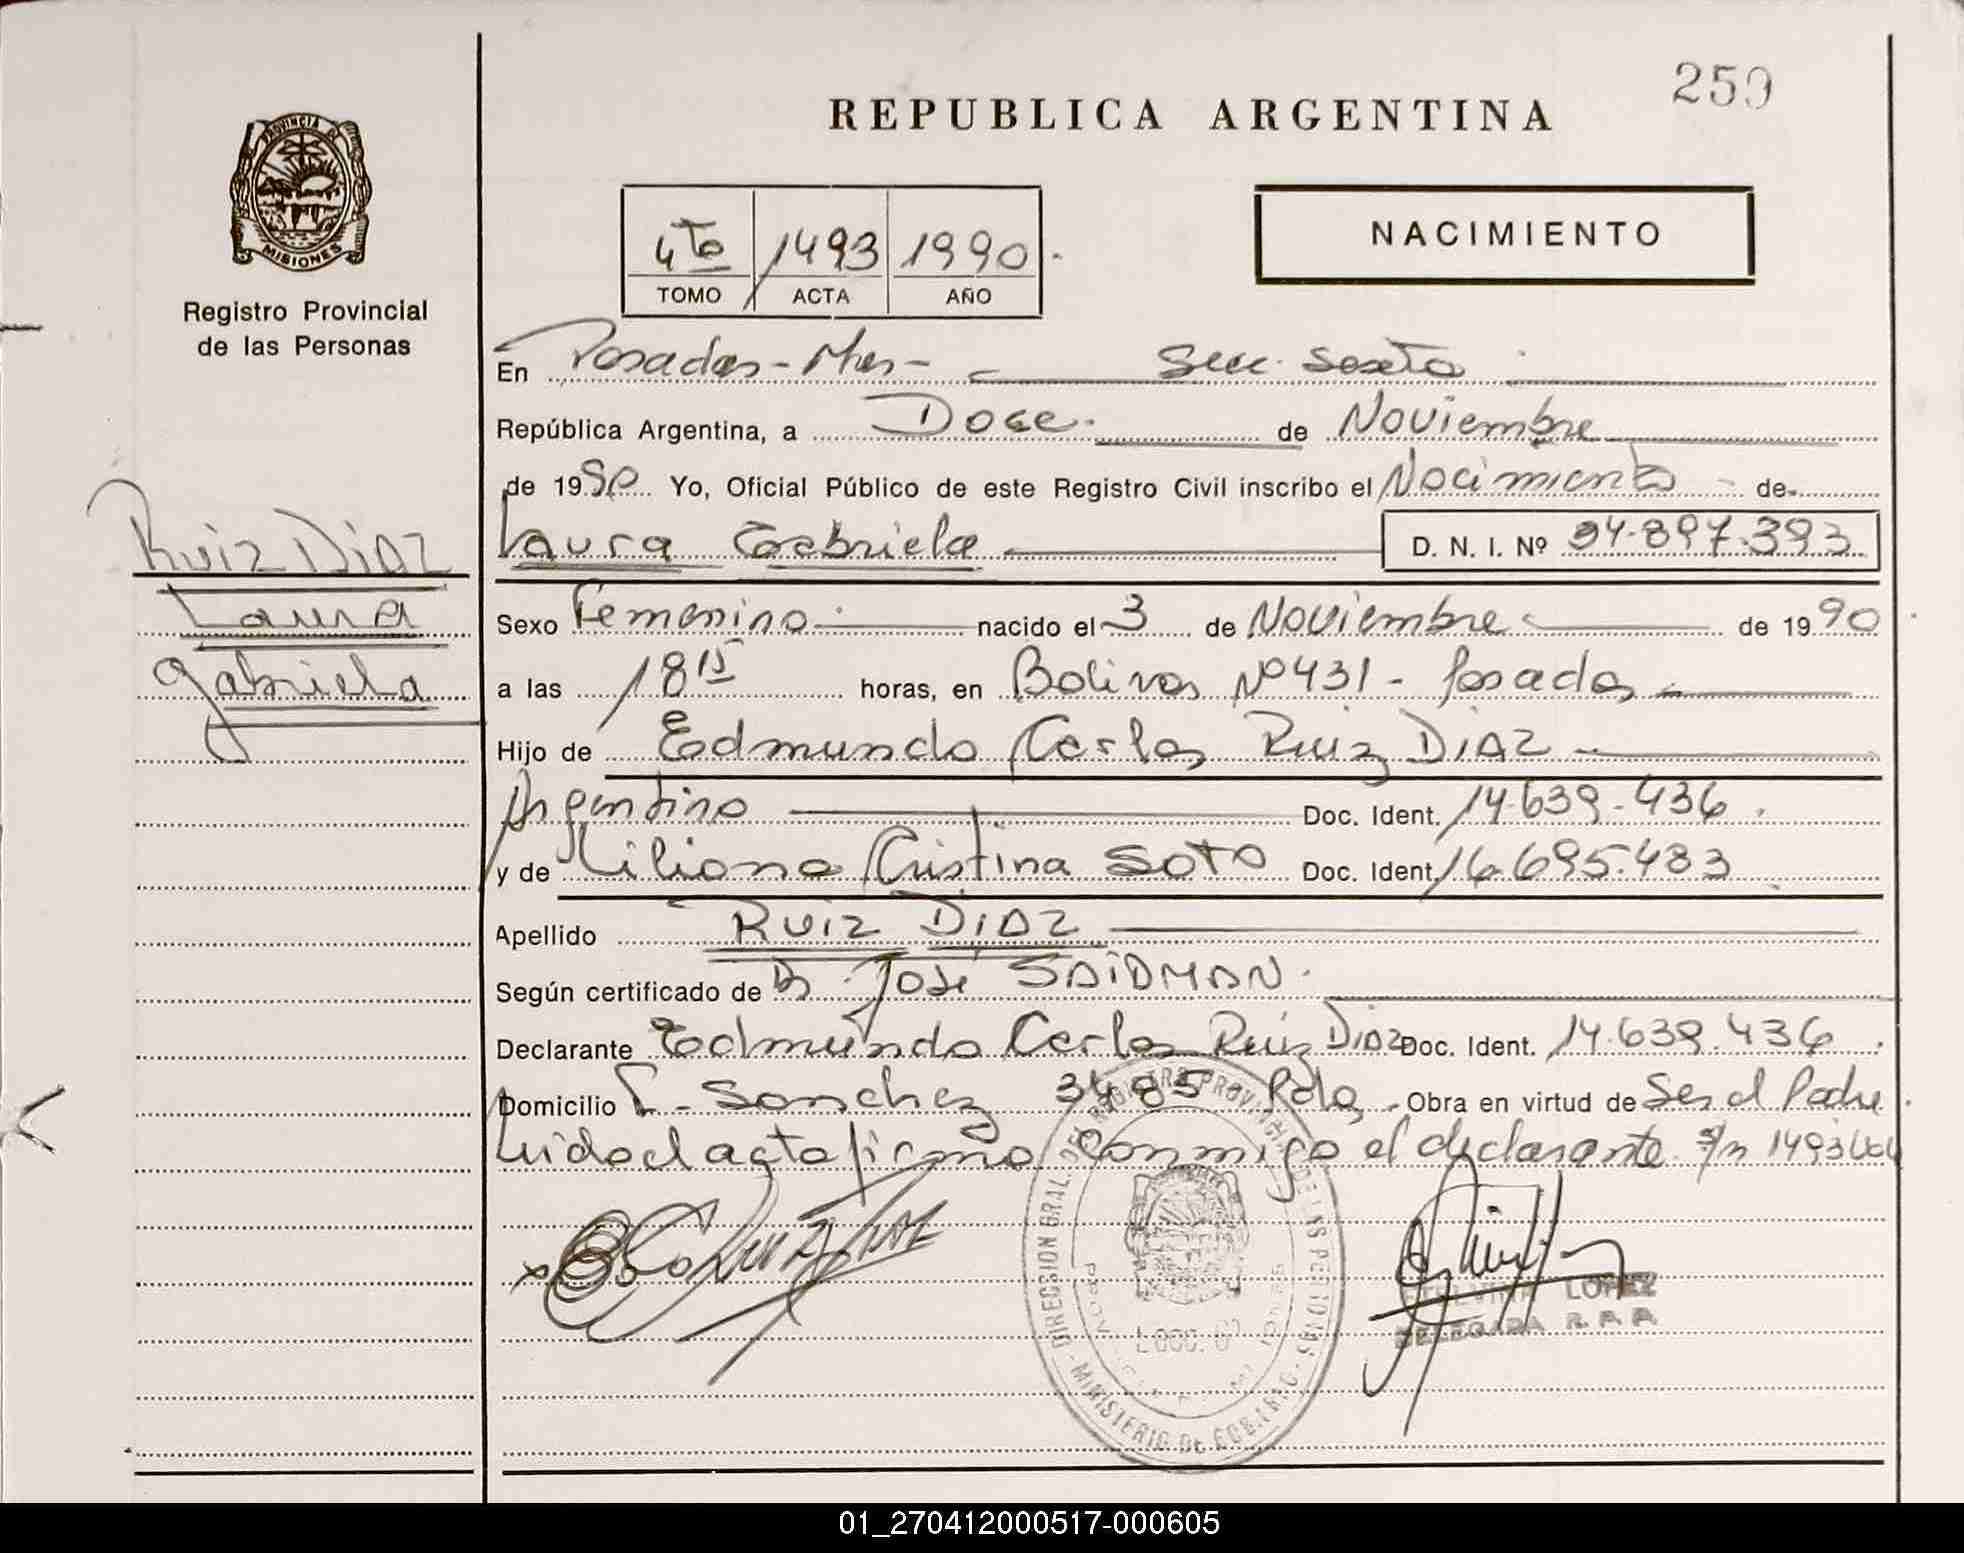 250
REPUBLICA ARGENTINA
PROVINCIA DE
MISIONES
Registro Provincial
de las Personas
4to 1493 1990
TOMO ACTA AÑO
NACIMIENTO
En Posadas - Mnes - Secc. Sexta
República Argentina, a Doce de Noviembre
de 1990 Yo, Oficial Público de este Registro Civil inscribo el Nacimiento de
Ruiz Diaz
Laura
Gabriela
Laura Gabriela D. N. I. Nº 34.897.393
Sexo Femenino nacido el 3 de Noviembre de 1990
a las 18 15 horas, en Bolivar Nº 431 - Posadas
Hijo de Edmundo Carlos Ruiz Diaz
Argentino Doc. Ident. 14.639.436
y de Liliana Cristina Soto Doc. Ident. 16.695.483
Apellido Ruiz Diaz
Según certificado de Dr. José SAIDMAN
Declarante Edmundo Carlos Ruiz Diaz Doc. Ident. 14.639.436
Domicilio F. Sanchez 3485 Pdas Obra en virtud de Ser el Padre
Leida el acta firma conmigo el declarante. s/n 1493
DIRECCION GRAL. DEL REGISTRO PROVINCIAL DE LAS PERSONAS - MINISTERIO DE GOBIERNO
LOPEZ
DELEGADA R.P.P.
01_270412000517-000605